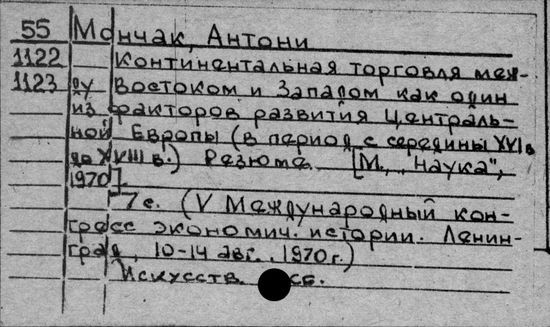 55 Мончак, Антони
1122 Континентальная торговля меж-
1123 ду Востоком и Западом как один
из факторов развития Централь-
ной Европы (в период с середины XVI в
до XVIII в.) Резюме [М., "Наука",
1970].
7 с. (V Международный кон-
гресс экономич. истории. Ленин-
град, 10-14 авг. 1970 г.)
Искусств.